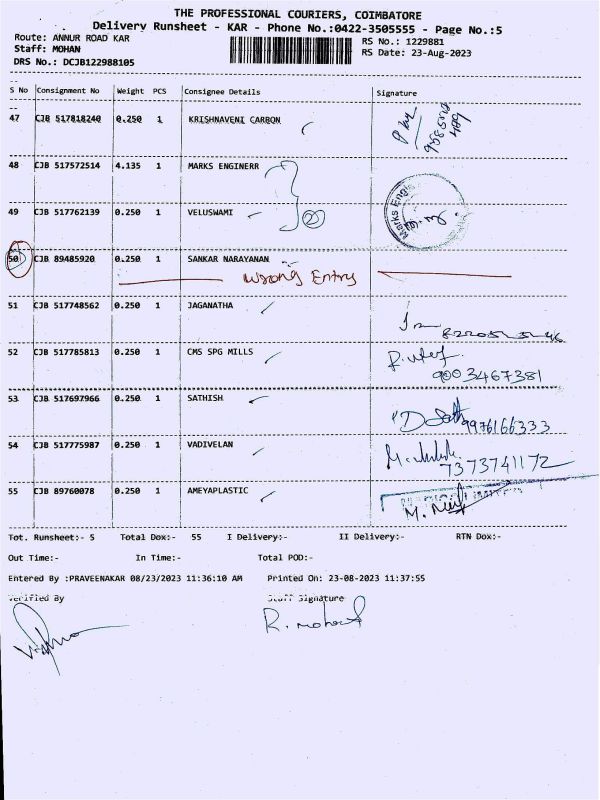 THE PROFESSIONAL COURIERS, COIMBATORE
Delivery Runsheet - KAR - Phone No.:0422-3505555 - Page No.:5
Route: ANNUR ROAD KAR
RS No.: 1229881
Staff: MOHAN
RS Date: 23-Aug-2023
DRS No.: DCJB122988105
S No Consignment No Weight PCS Consignee Details Signature
47 CJB 517818240 0.250 1 KRISHNAVENI CARBON
48 CJB 517572514 4.135 1 MARKS ENGINERR
49 CJB 517762139 0.250 1 VELUSWAMI 2
50 CJB 89485920 0.250 1 SANKAR NARAYANAN
Wrong Entry
51 CJB 517748562 0.250 1 JAGANATHA
52 CJB 517785813 0.250 1 CMS SPG MILLS
9003467381
53 CJB 517697966 0.250 1 SATHISH
9976166333
54 CJB 517775987 0.250 1 VADIVELAN
7373741172
55 CJB 89760078 0.250 1 AMEYAPLASTIC
Tot. Runsheet:- 5 Total Dox:- 55 I Delivery:- II Delivery:- RTN Dox:-
Out Time:- In Time:- Total POD:-
Entered By :PRAVEENAKAR 08/23/2023 11:36:10 AM Printed On: 23-08-2023 11:37:55
Verified By Staff Signature
R. Mohan